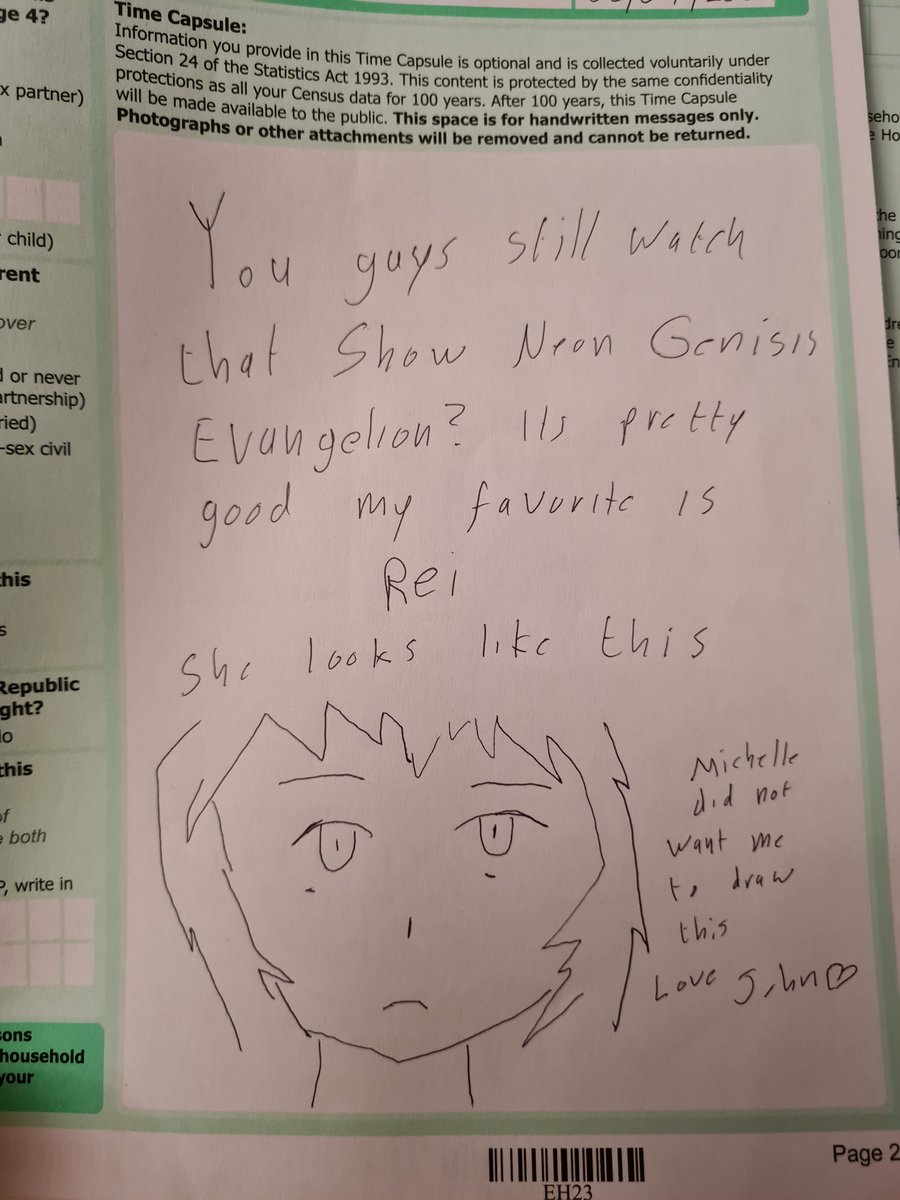 ge 4?
x partner)
child)
rent
over
d or never
artnership)
ried)
-sex civil
this
s
Republic
ght?
lo
this
of
e both
P, write in
sons
household
your
Time Capsule:
Information you provide in this Time Capsule is optional and is collected voluntarily under
Section 24 of the Statistics Act 1993. This content is protected by the same confidentiality
protections as all your Census data for 100 years. After 100 years, this Time Capsule
will be made available to the public. This space is for handwritten messages only.
Photographs or other attachments will be removed and cannot be returned.
You guys still watch
that Show Neon Genisis
Evangelion? Its pretty
good my favorite is
Rei
She looks like this
Michelle
did not
want me
to draw
this
Love John♡
EH23
Page 2
seho
e Ho
the
ning
oor
dre
e
En